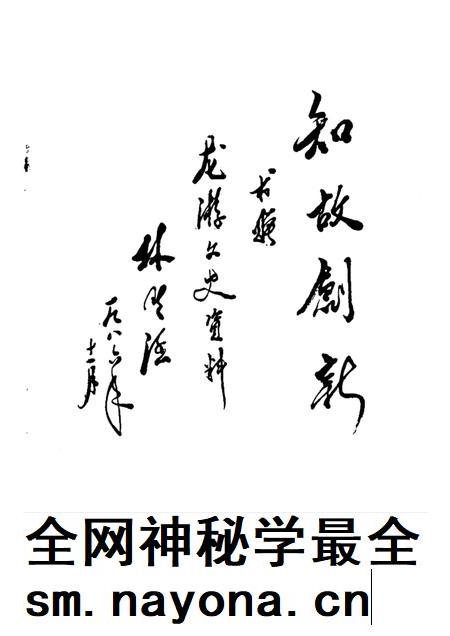 知故創新
龙游文史资料
林
一九八六年
十一月
全网神秘学最全
sm.nayona.cn